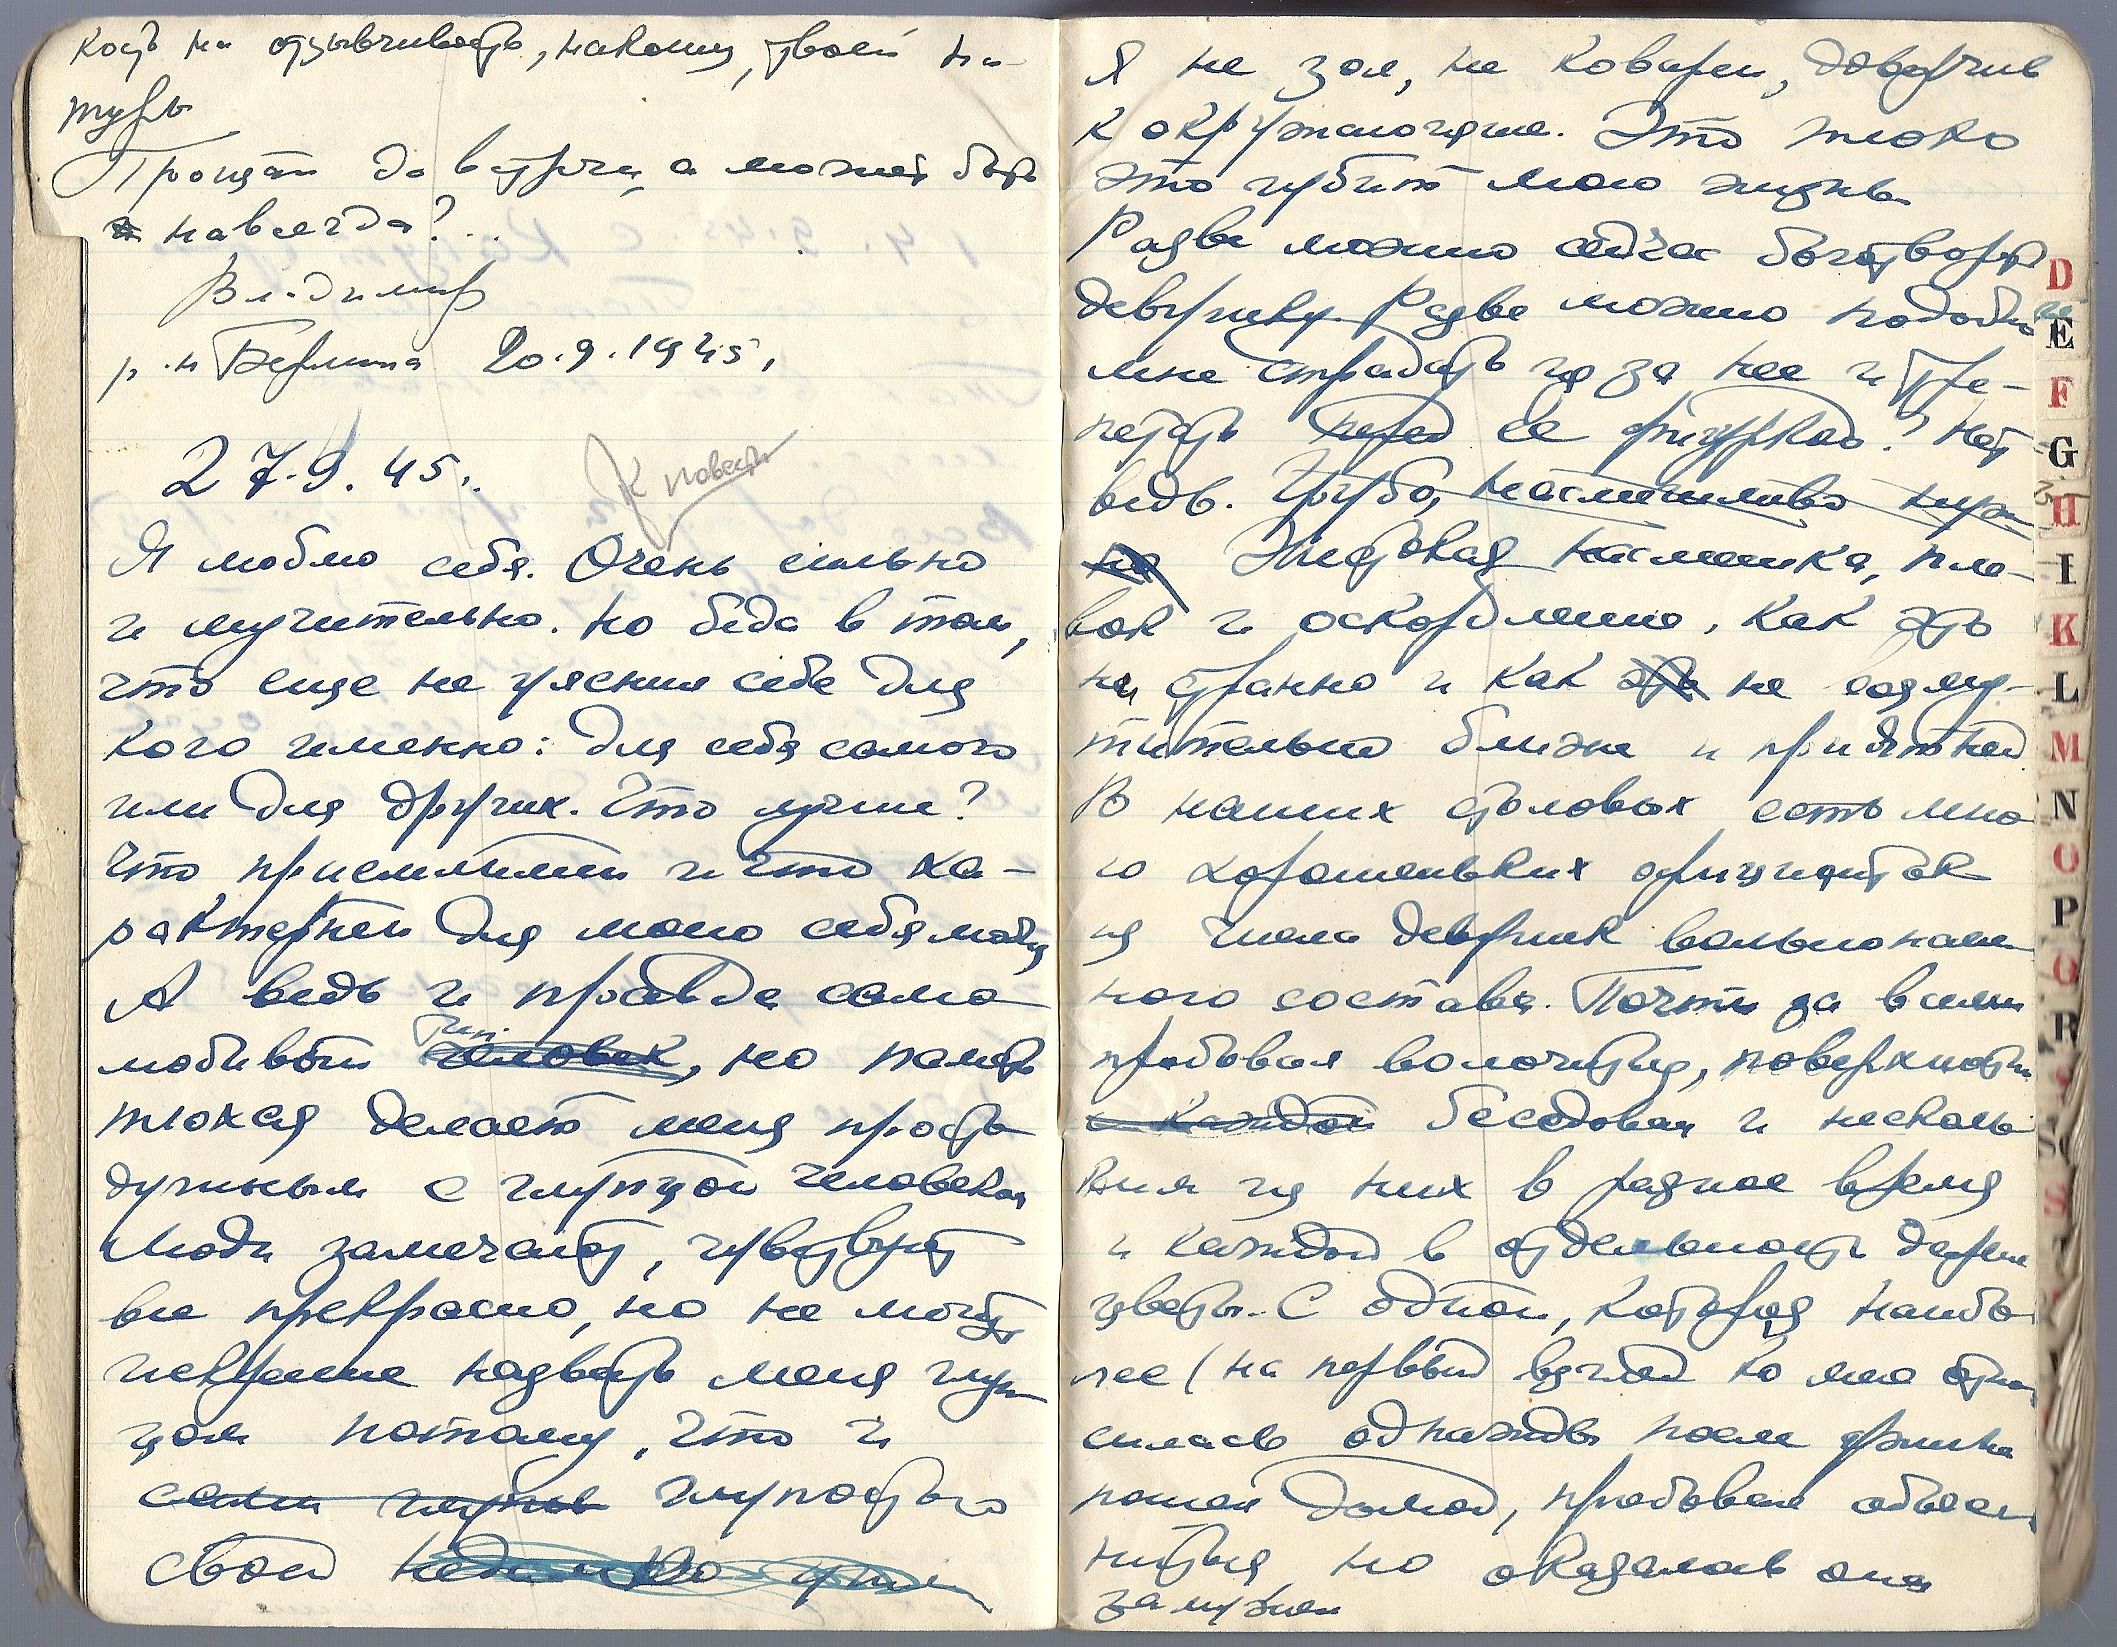 кость на отзывчивость, наконец, твоей на-
туры
Прощай до встречи, а может быть
и навсегда?..
Владимир
р-н Берлина 20.9.1945,
27.9.45.
К повести
Я люблю себя. Очень сильно
и мучительно. Но беда в том,
что еще не уяснил себе для
кого именно: для себя самого
или для других. Что лучше?
Что приемлимей и что ха-
рактерней для моего себялюбия
А ведь и правда само-
любивый человек, но память
тип.
плохая делает меня просто-
душным с глупцой человеком
Люди замечают, чувствуют
все прекрасно, но не могут
искренне назвать меня глуп-
цом потому, что и
сами глупы глупостью
своей
Я не зол, не коварен, доверчив
к окружающим. Это плохо
это губит мою жизнь
Разве можно сейчас боготворить
девушку. Разве можно подобно
мне страдать из за нее и тре-
петать перед ее фигуркой? Нет
ведь. Грубо, насмешливо нуж-
но Энергичная насмешка, пле-
вок и оскорбление, как это
ни странно и как это не возму-
тительно ближе и приятней
В наших столовых есть мно-
го хорошеньких официанток
из числа девушек вольнонаем-
ного состава. Почти за всеми
пробовал волочиться, поверхностно
с каждой беседовал и несколь-
ким из них в разное время
и каждой в отдельности дарил
цветы. С одной, которая наибо-
лее (на первый взгляд ко мне отно-
силась однажды после фильма
пошел домой, пробовал объяс-
ниться, но оказалось она
замужем